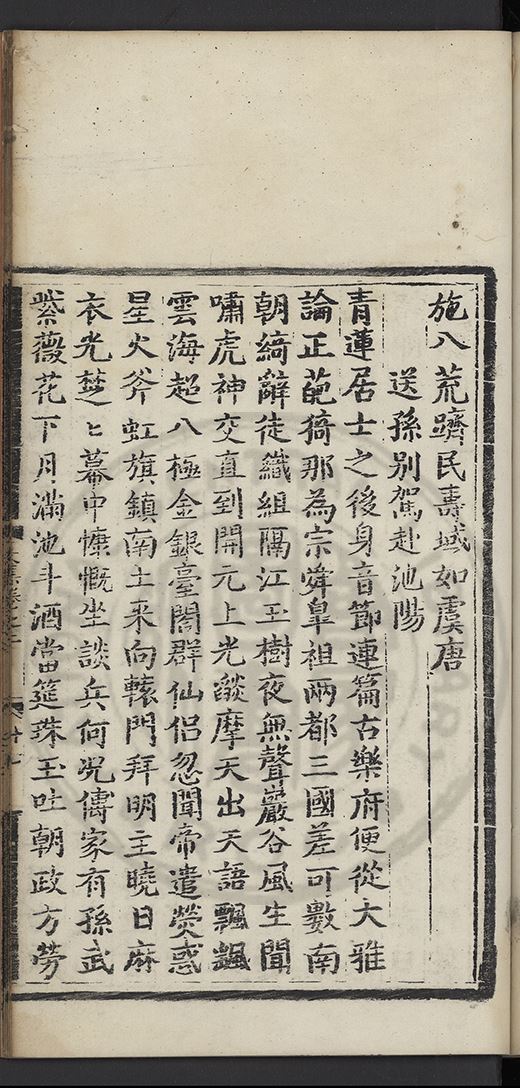 施八荒躋民壽域如虞唐
送孫別駕赴池陽
青蓮居士之後身音節連篇古樂府便從大雅
論正葩猗那為宗舜皇祖兩都三國差可數南
朝綺辭徒織組隔江玉樹夜無聲巖谷風生聞
嘯虎神交直到開元上光燄摩天出天語飄飄
雲海超八極金銀臺闇群仙侶忽聞帝遣熒惑
星火斧虹旗鎮南土来向轅門拜明主曉日麻
衣光楚〻幕中慷慨坐談兵何况傳家有孫武
紫薇花下月滿池斗酒當筵珠玉吐朝政方勞